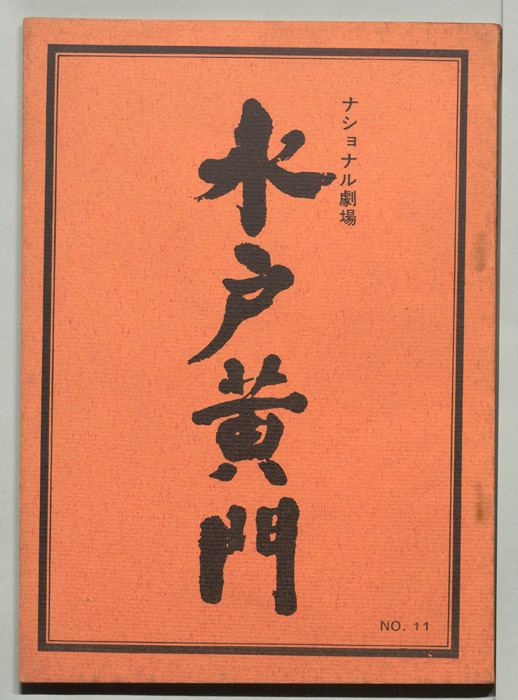 ナショナル劇場
水戸黄門
NO. 11